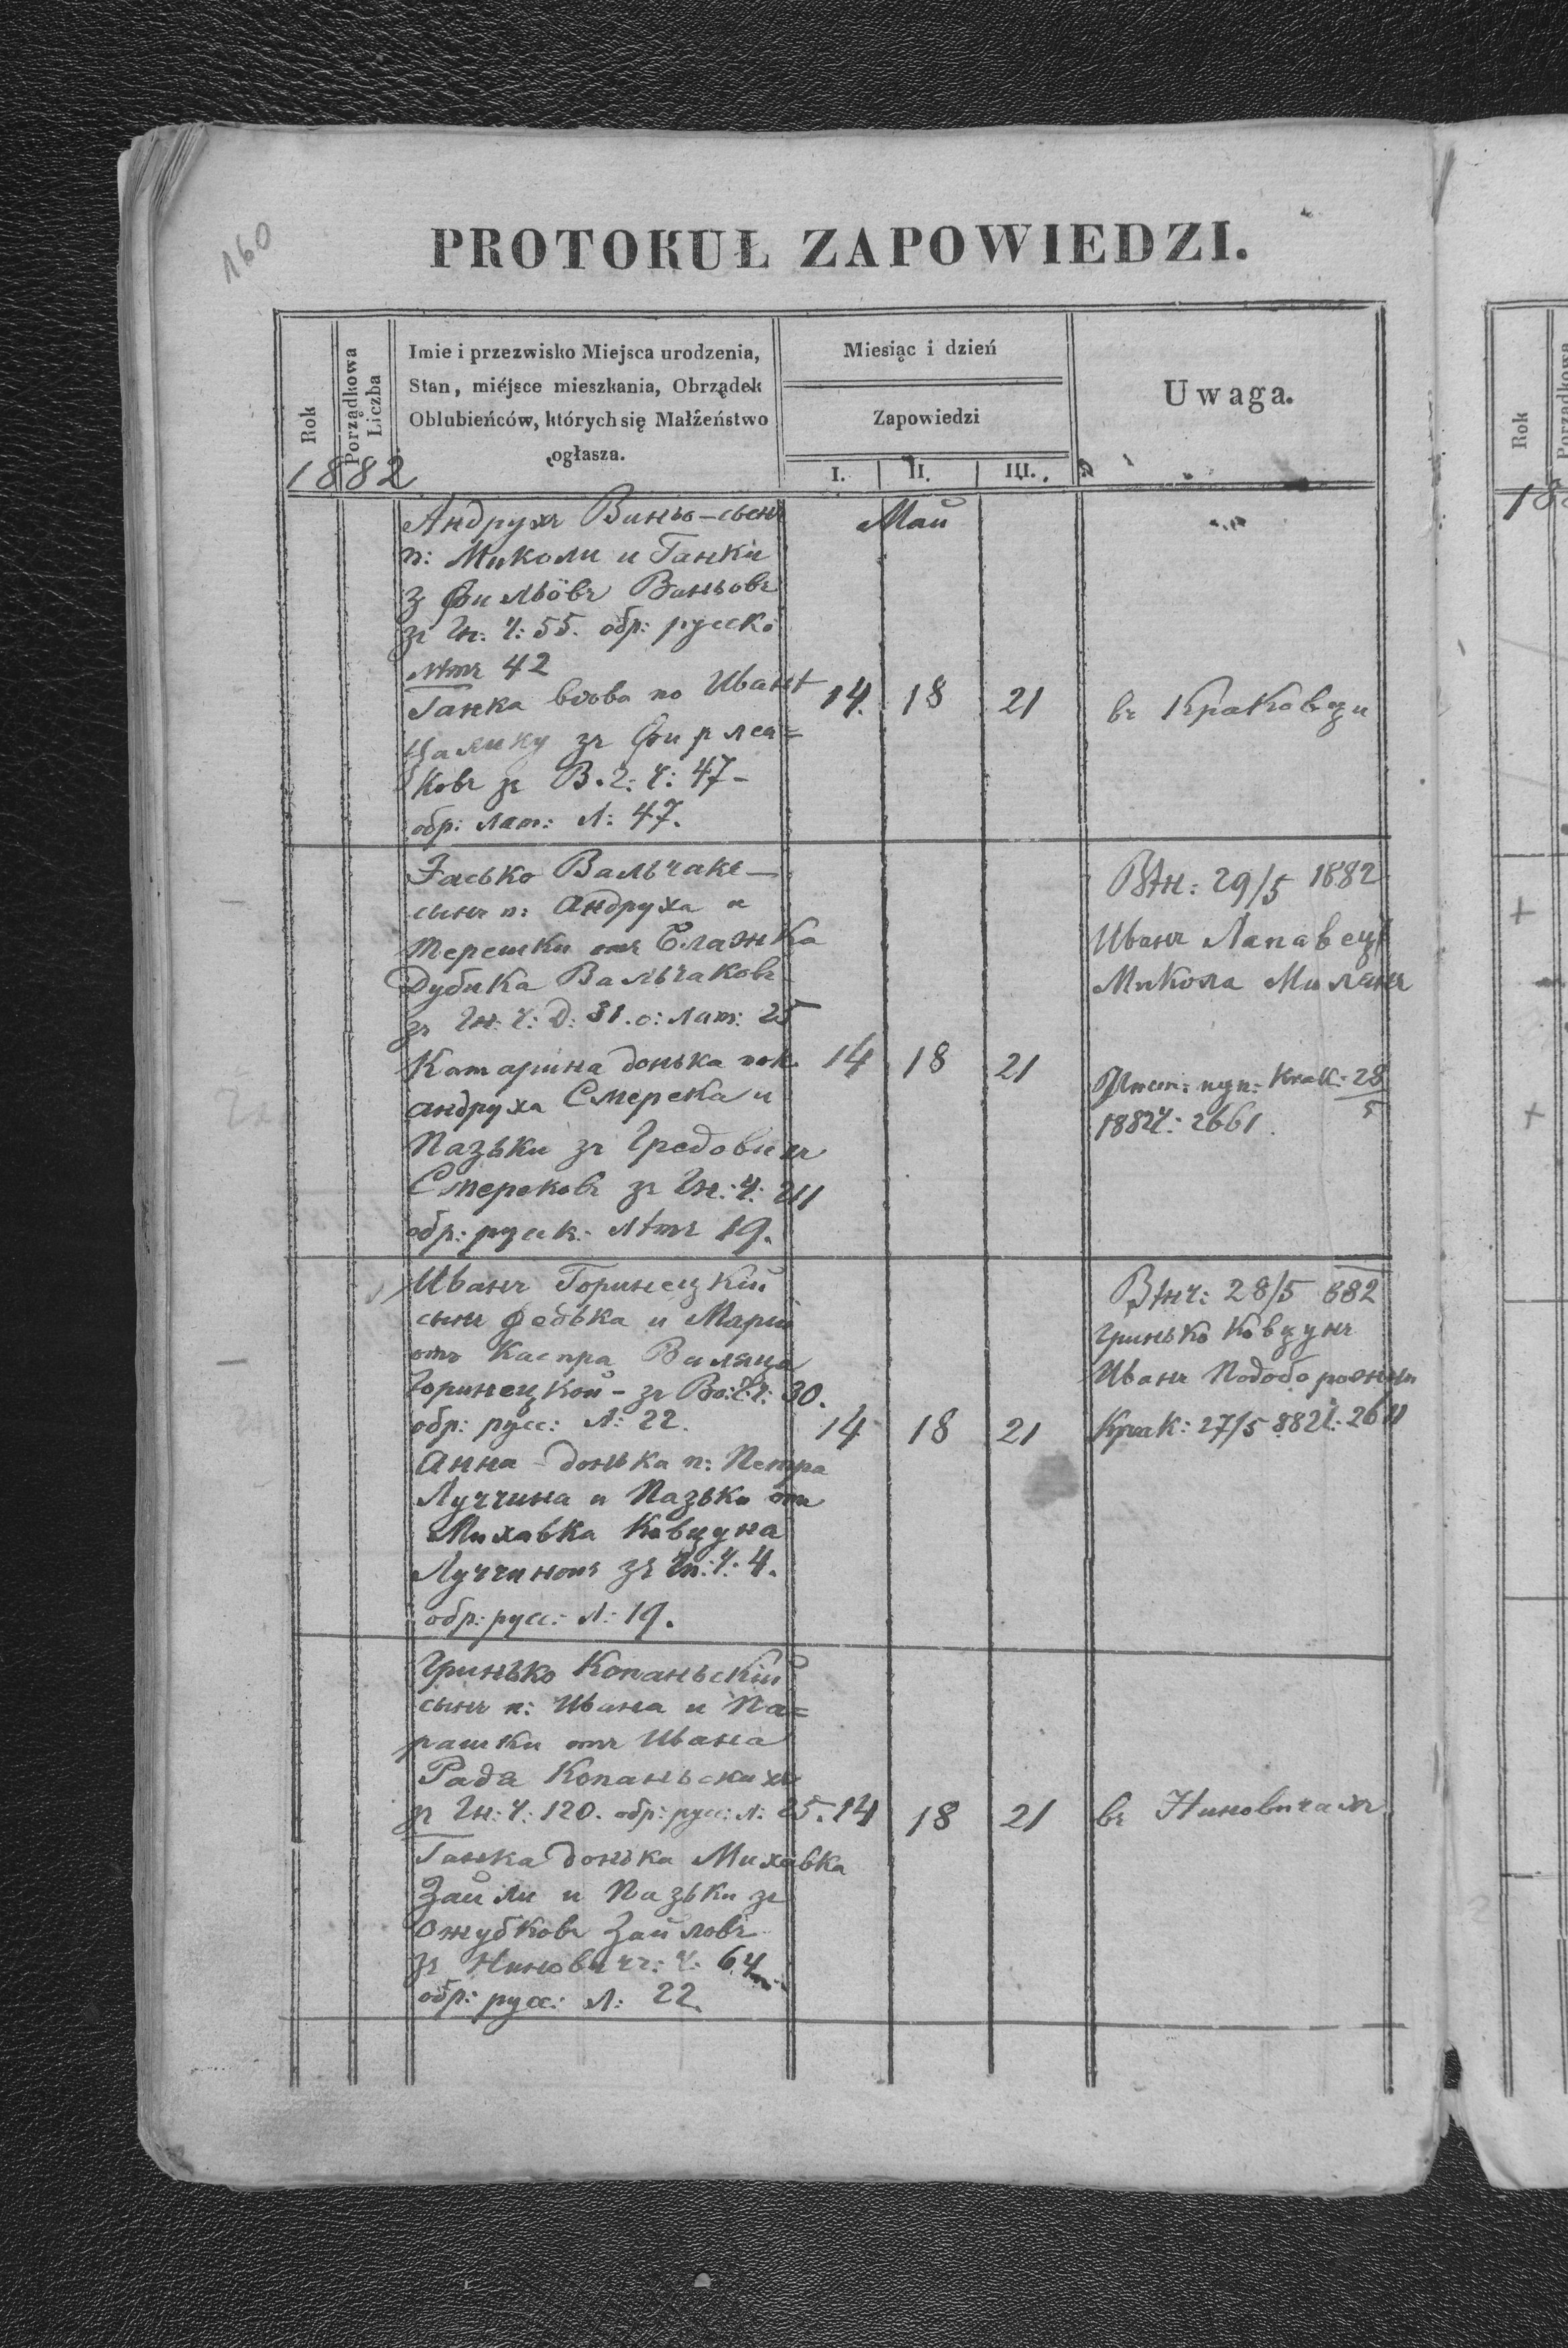 160
PROTOKUŁ ZAPOWIEDZI.
Rok
Porządkowa Liczba
Imie i przezwisko Miejsca urodzenia,
Stan, miéjsce mieszkania, Obrządek
Oblubieńców, których się Małżeństwo
ogłasza.
Miesiąc i dzień
Zapowiedzi
I. II. III.
Uwaga.
1882
Май
Андрухъ Виньо-сынъ
п: Миколи и Ганки
з Фильовъ Виньовъ
зъ Гн: Ч: 55. обр: руско
лѣтъ 42
Ганка вдова по Иванѣ
зъ Фирлеа=
ковъ зъ В. г: Ч: 47-
обр: лат: Л: 47.
14. 18 21
въ Краковци
Яско Вальчакъ-
сынъ п: Андруха и
Терешки отъ Блажка
Дубика Вальчаковъ
зъ Гн: Ч: Д: 31. о: лат: 25
Катарина донька пок.
Андруха Смерека и
Пазьки зъ Гредовихъ
Смерековъ зъ Гн: Ч: 211
обр: руск: лѣтъ 19.
14 18 21
Вѣн: 29/5 1882
Иванъ Лапавецъ
Микола Миланъ
Крак: 28/5
1882 Ч: 2661
Иванъ Горинецкій
сынъ Федька и Маріи
отъ Каспра Виляца
Горинецкой - зъ Во: г: Ч: 30.
обр: русс: Л: 22.
Анна - донька п: Петра
Луччина и Пазьки отъ
Михавка Ковцуна
Луччиныхъ зъ Гн: Ч: 4.
обр: русс: Л: 19.
14 18 21
Вѣнч: 28/5 882
Гринько Ковцунъ
Иванъ
Крак: 27/5 882 Ч: 2611
Гринько Копаньскій
сынъ п: Ивана и Па=
рашки отъ Ивана
Рада Копаньскихъ
зъ Гн: Ч: 120. обр: русс: Л: 25.
Ганка донька Михавка
Зайли и Пазьки зъ
Ожубковъ Зайловъ
зъ Нинович: Ч: 64
обр: русс: Л: 22.
14 18 21
въ Ниновичахъ
Rok
Porządkowa
18